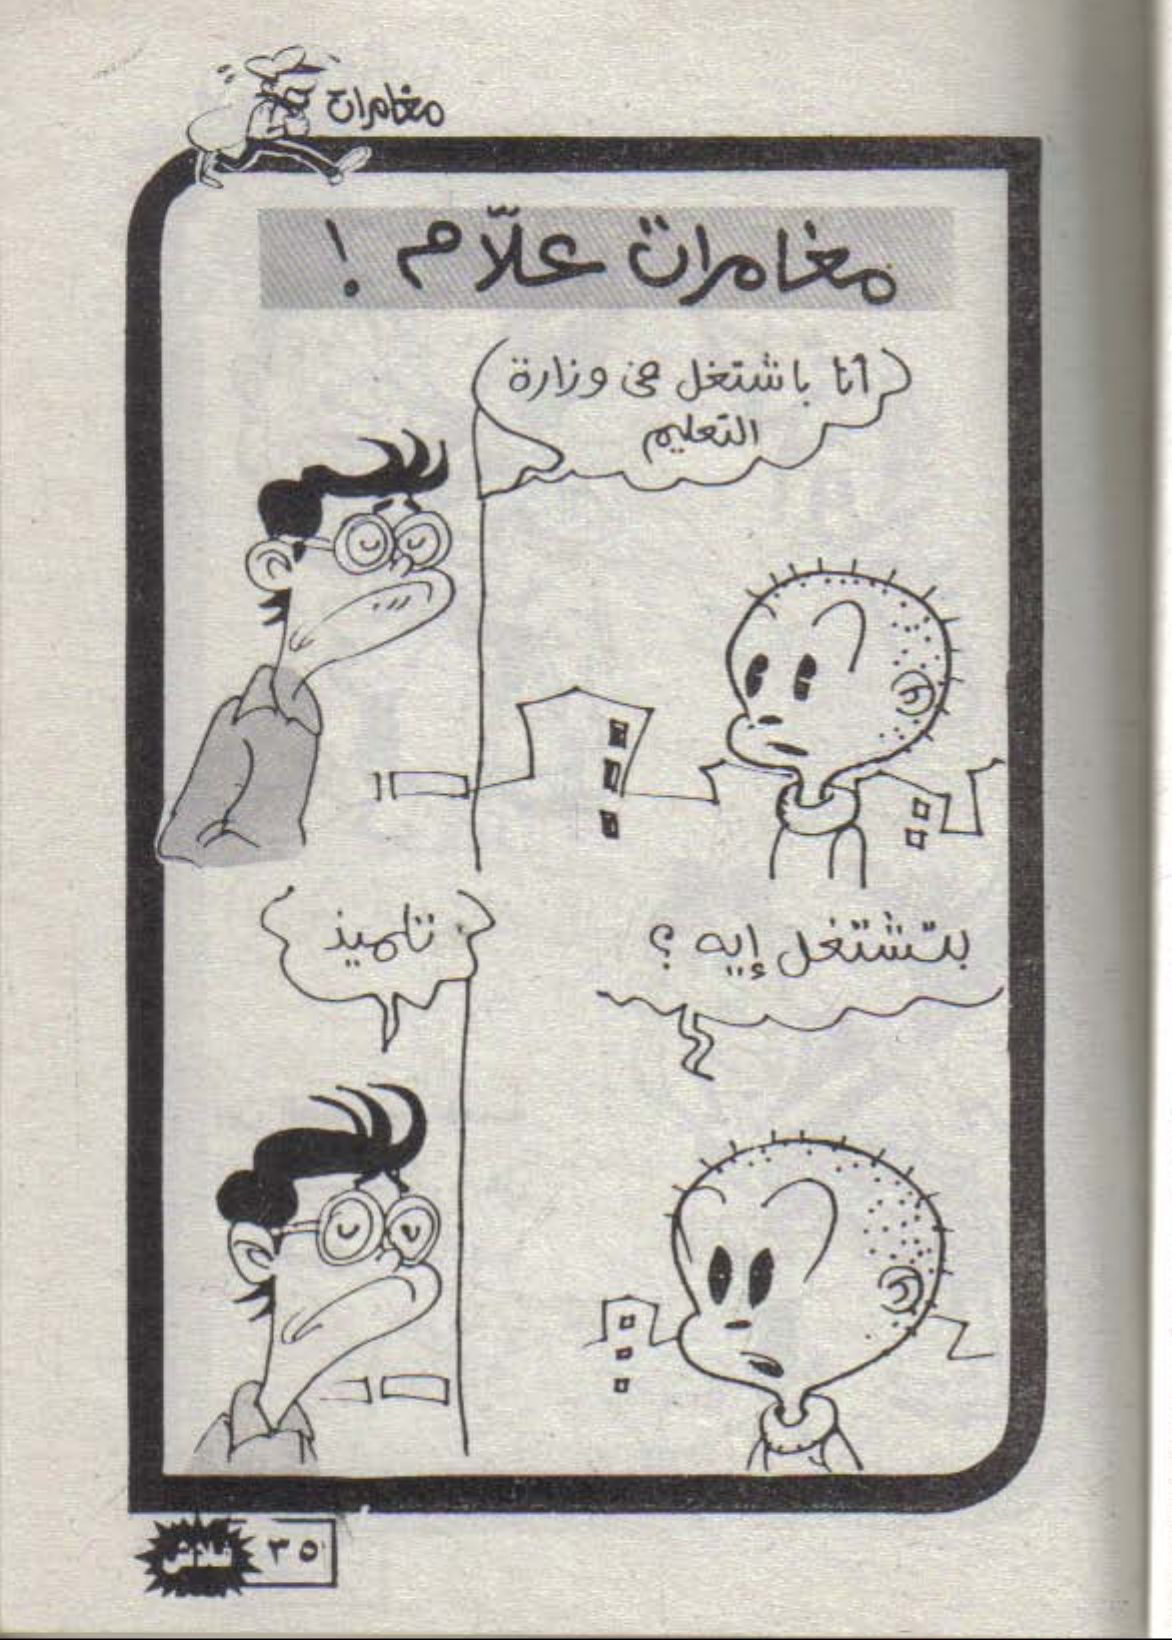 مغامرات
مغامرات علاّم !
أنا باشتغل في وزارة
التعليم
بتشتغل إيه ؟
تلميذ
٣٥
فلاش